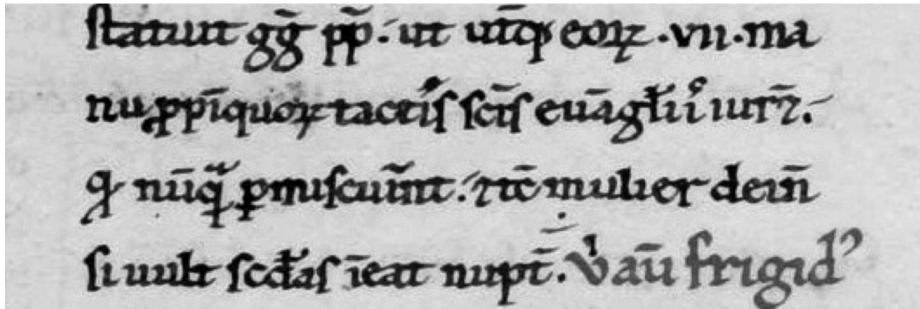 statuit gḡ pp̄. ut utq̄ꝫ eoꝝ .vii. ma
nu ꝓpīquoꝝ tactis sc̄is euāgl̄iis iur⁊̄.
ꝙ nūqᷓ ꝑmiscuīnt. ⁊ tc̄ mulier dein̄
si uult scd̄as īeat nupt̄. Vͥ aū frigidꝰ